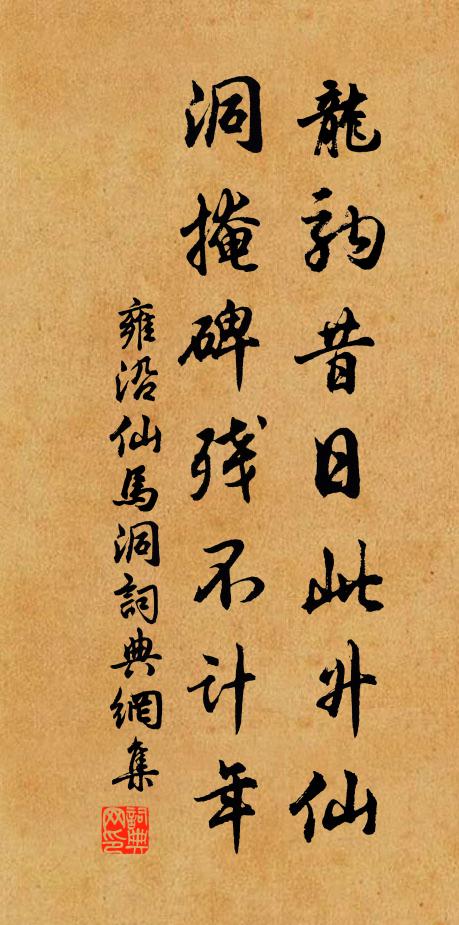 龍駒昔日此升仙
洞掩碑殘不計年
雍沿仙馬洞詞典網集
詞典網印